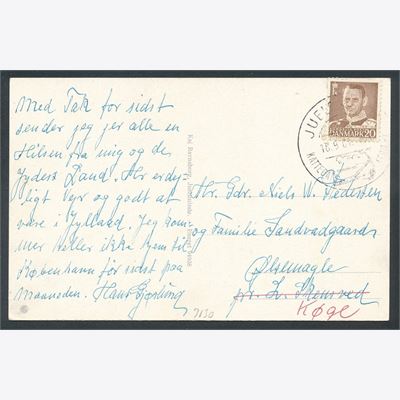 Med Tak for sidst
sender jeg jer alle en
Hilsen fra mig og de
jyders Land. Her er dej-
ligt Vejr og godt at
være i Jylland. Jeg kom-
mer heller ikke hjem til
København før sidst paa
Maaneden. Hans
DANMARK 20
Hr. Gdr. Niels W. Pedersen
og Familie Sandvadgaard
Ølsemagle
pr. L. Skensved
Køge